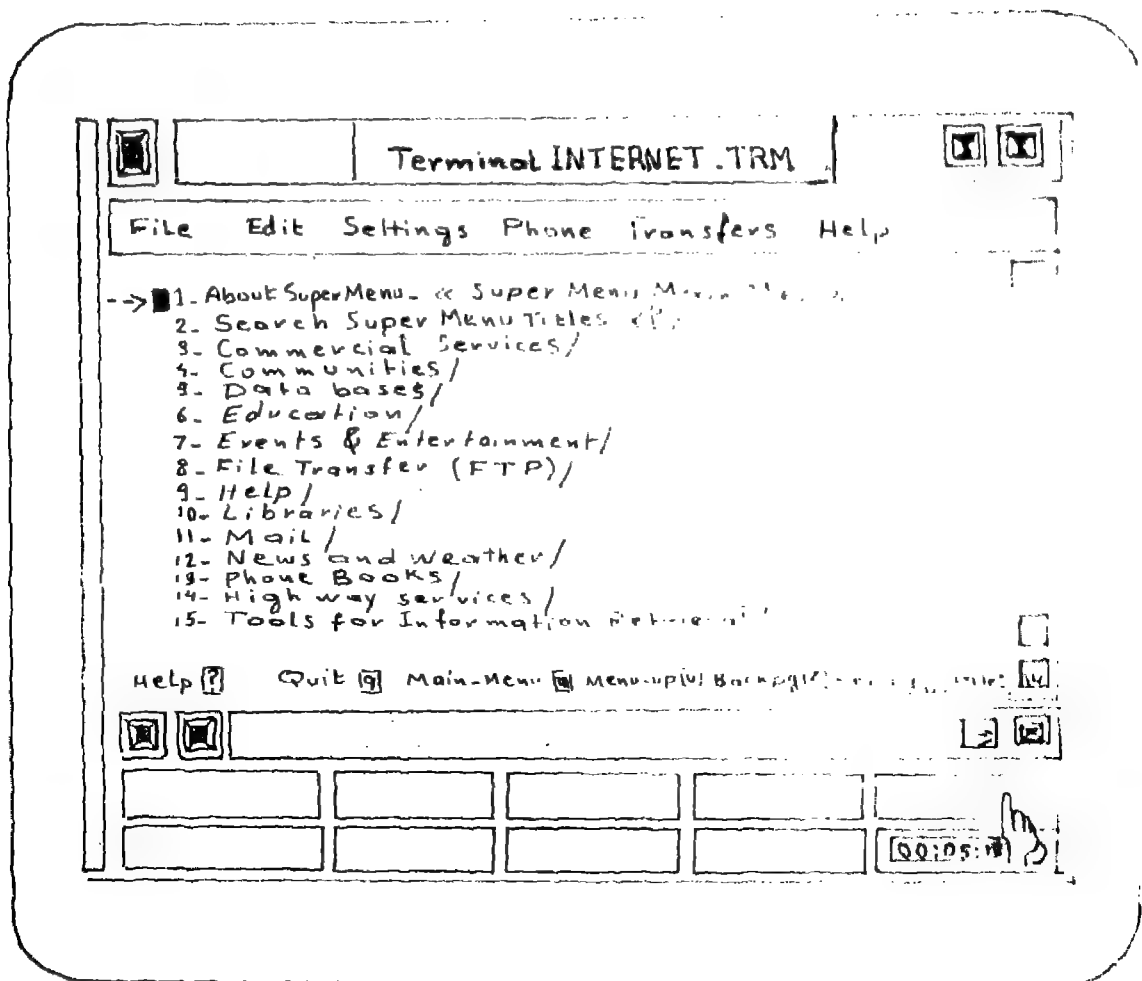 Terminal INTERNET.TRM
File Edit Settings Phone Transfers Help
-->1- About SuperMenu- << Super Menu
2- Search Super Menu Titles <?>
3- Commercial Services/
4- Communities/
5- Data bases/
6- Education/
7- Events & Entertainment/
8- File Transfer (FTP)/
9- Help/
10- Libraries/
11- Mail/
12- News and weather/
13- Phone Books/
14- High way services/
15- Tools for Information
Help [?] Quit [q] Main-Menu Menu-up[u]
00:05: